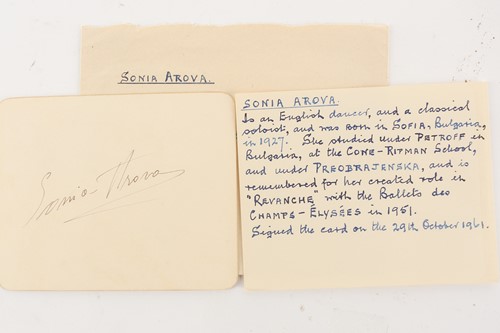 SONIA AROVA.
Sonia Arova
SONIA AROVA
Is an English dancer, and a classical
soloist, and was born in SOFIA, Bulgaria,
in 1927. She studied under PETROFF in
Bulgaria, at the CONE-RIPMAN SCHOOL,
and under PREOBRAJENSKA, and is
remembered for her created role in
"REVANCHE" with the Ballets des
CHAMPS-ÉLYSÉES in 1951.
Signed the card on the 29th October 1961.